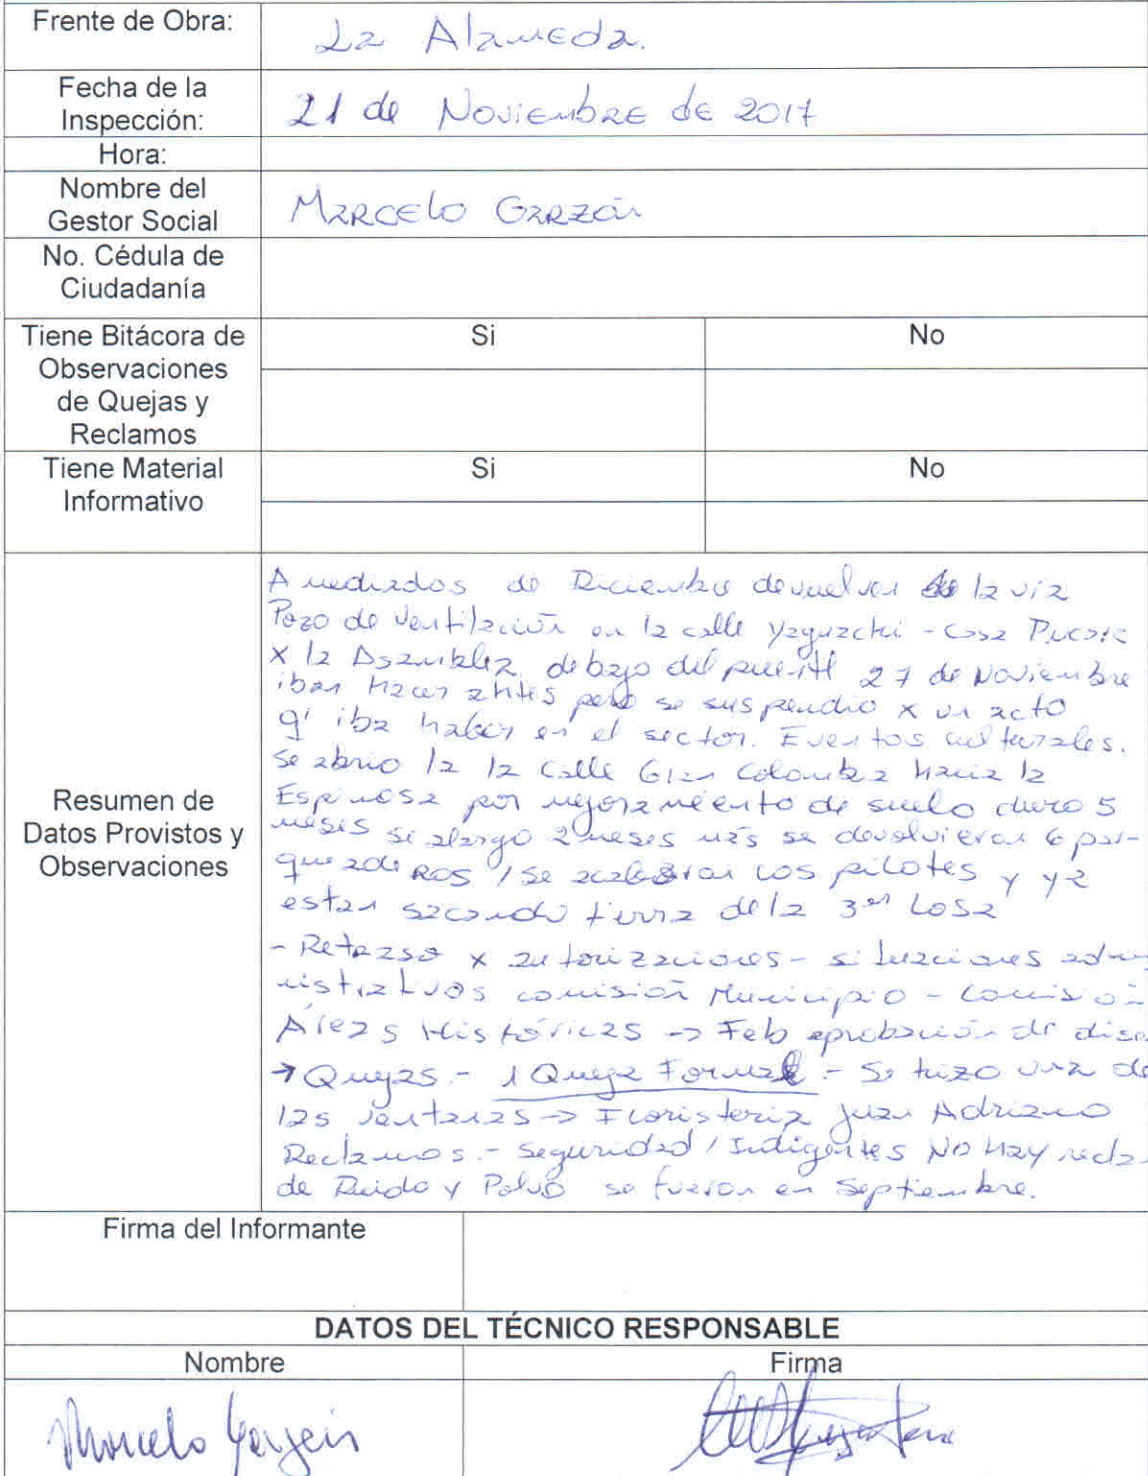 Frente de Obra: La Alameda.
Fecha de la
Inspección: 21 de Noviembre de 2017
Hora:
Nombre del
Gestor Social Marcelo Garzón
No. Cédula de
Ciudadanía
Tiene Bitácora de
Observaciones
de Quejas y
Reclamos
Si No
Tiene Material
Informativo
Si No
Resumen de
Datos Provistos y
Observaciones
A mediados de Diciembre devuelven la vía
Pozo de ventilación en la calle Yaguachi - Casa
x la Asamblea, debajo del puente 27 de Noviembre
iban hacer antes pero se suspendio x un acto
q' iba haber en el sector. Eventos culturales.
Se abrio la la calle Gran Colombia hacia la
Espinosa por mejoramiento de suelo duro 5
meses si alargo 2 meses más se devolvieron 6 par-
queaderos / Se acabaron los pilotes y ya
estan sacando tierra de la 3er Losa
- Retazso x autorizaciones - situaciones admi
nistrativos comisión Municipio - Comisión
Áreas Históricas -> Feb aprobación de dise
→ Quejas.- 1 Queja Formal - Se hizo una de
las ventanas -> Floristeria Juan Adriano
Reclamos.- Seguridad / Indigentes No hay recla-
de Ruido y Polvo se fueron en Septiembre.
Firma del Informante
DATOS DEL TÉCNICO RESPONSABLE
Nombre Firma
Marcelo